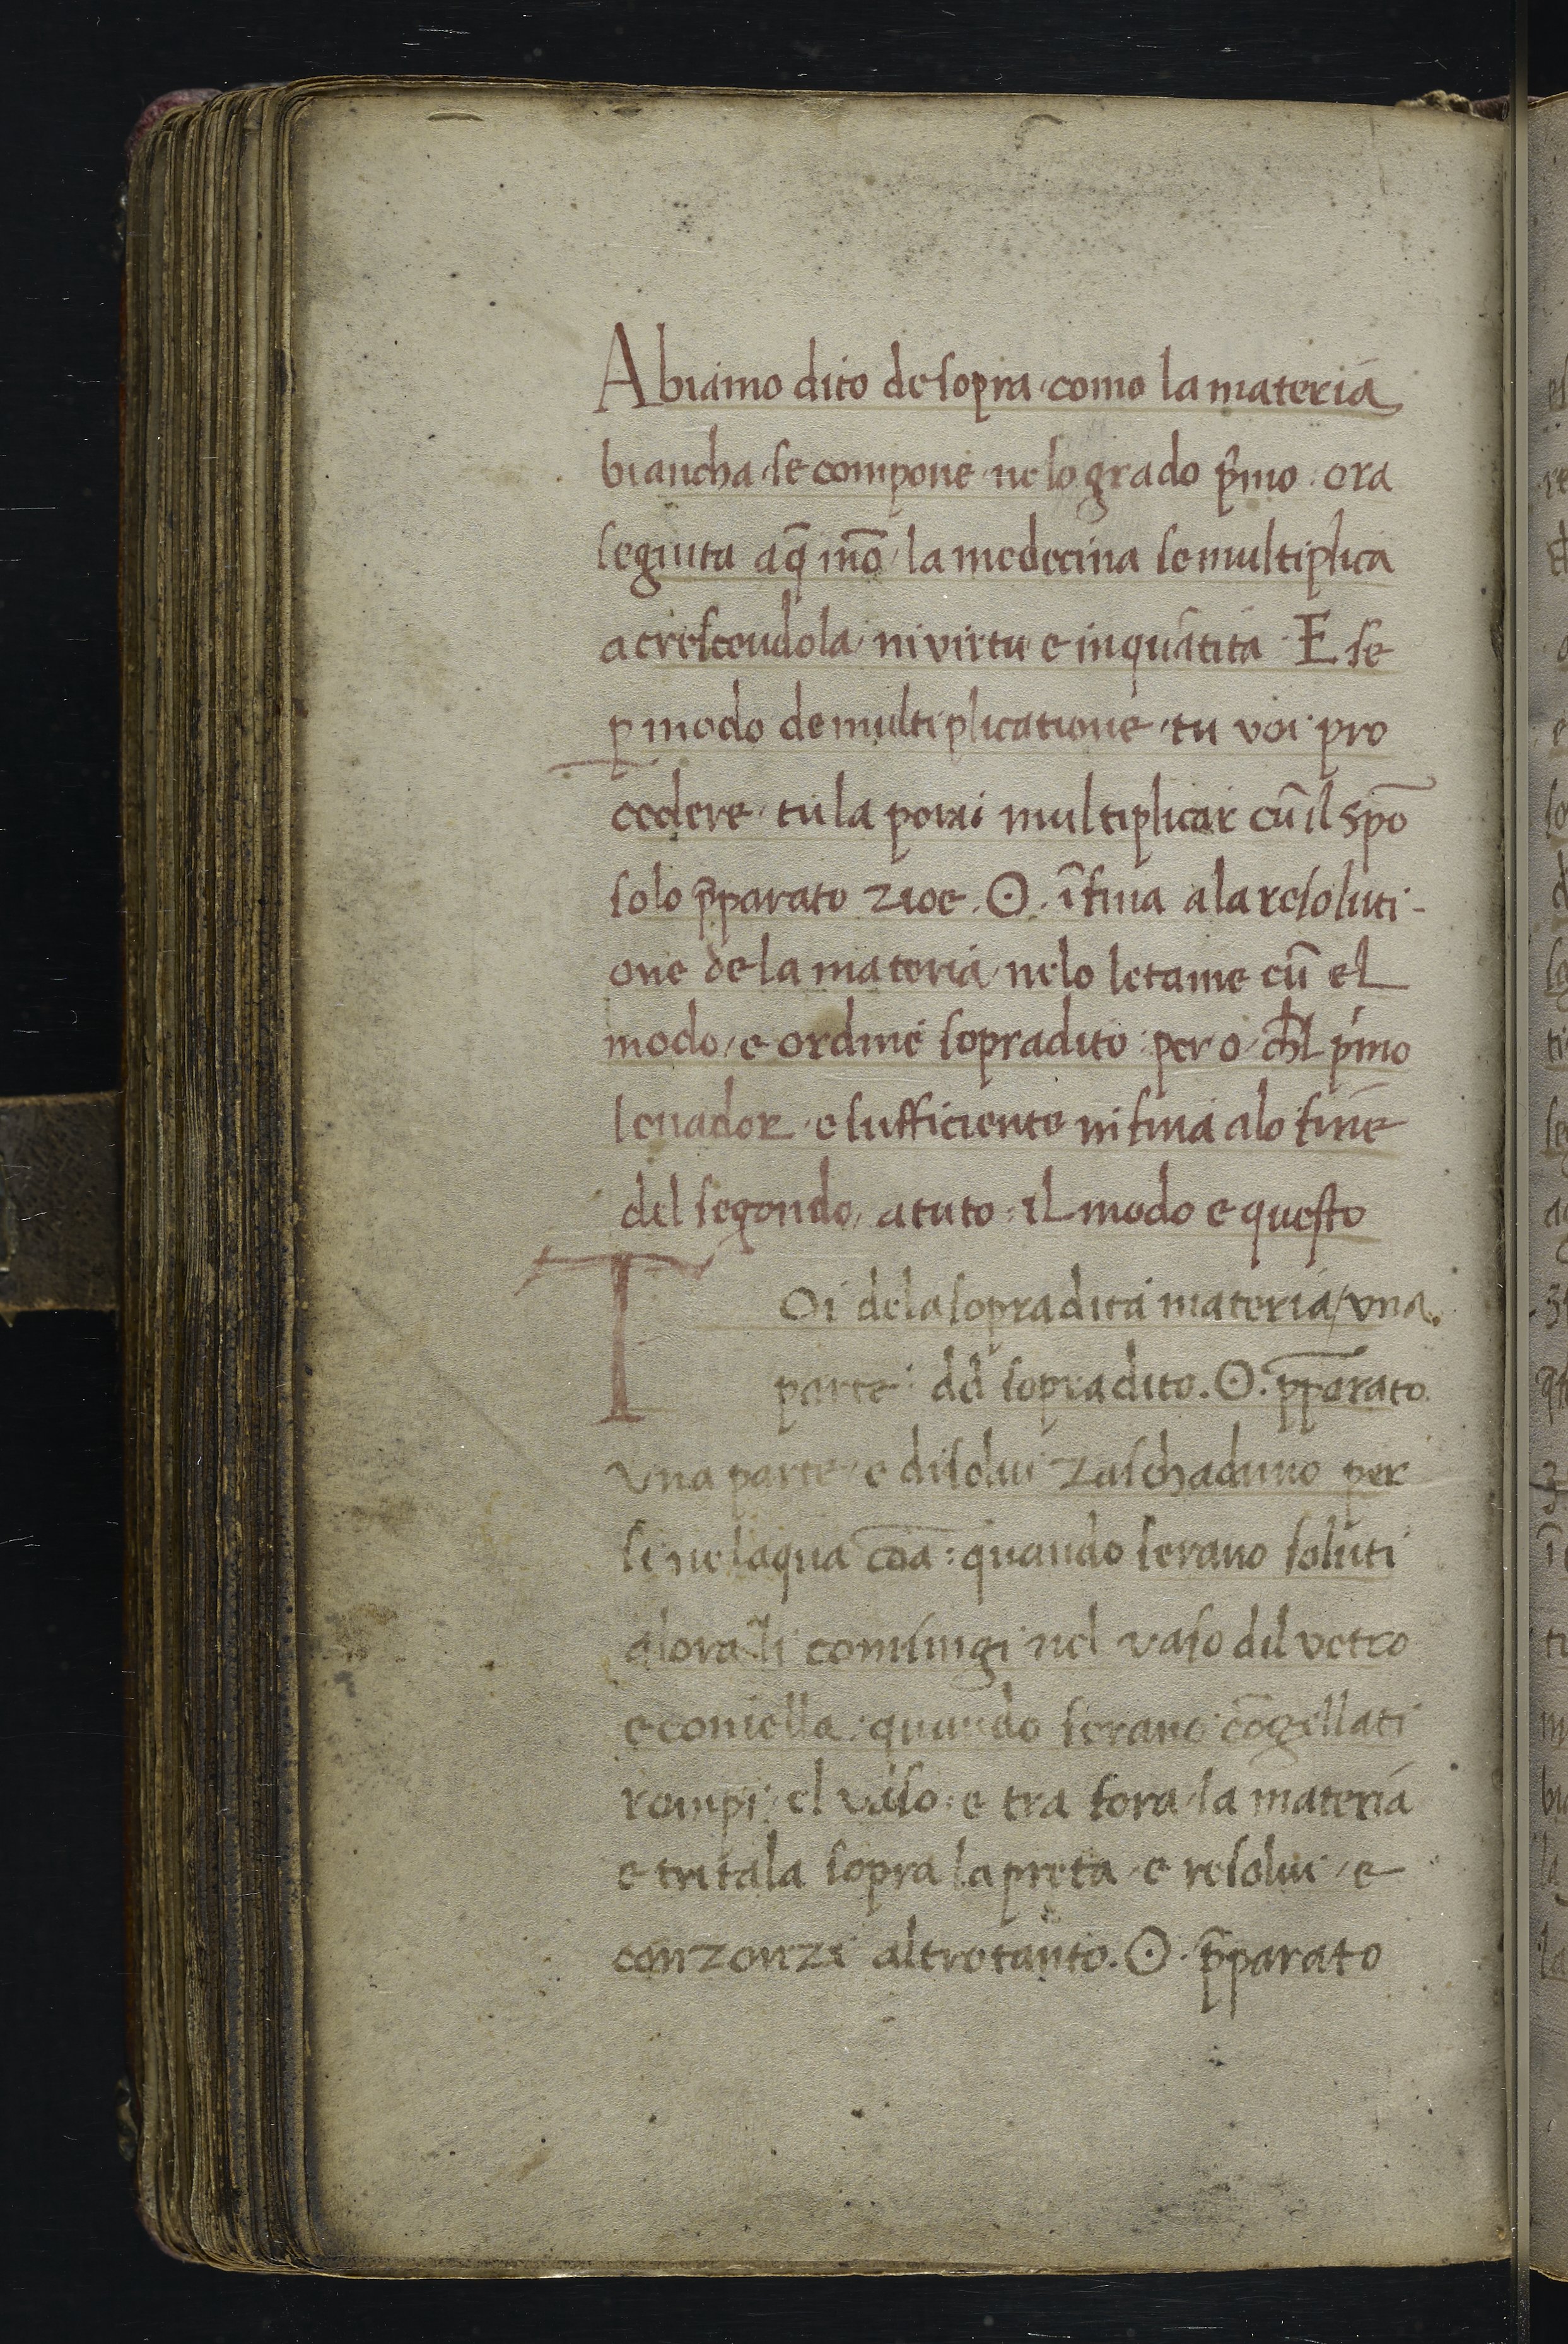 Abiamo dito de sopra como la materia
biancha se compone ne lo grado p̄mo: ora
seguita aq̄ mō la medecina se multiplica
acrescendola ni virtu e in quātita E se
ꝑ modo de multiplicatione tu voi pro
cedere tu la porai multiplicar cū il spō
solo p̄parato zioe .☉. īfina a la resoluti-
one de la materia nelo letame cū el
modo e ordine sopradito: pero ch̄l p̄mo
leuador e sufficiente nifina alo fine
del segondo, a tuto: il modo e questo
Toi de la sopradita materia / vna.
parte: del sopradito .☉. p̄parato
vna parte e disolui zaschaduno per
si nelaqua cōa: quando serano soluti
alora li comiungi nel vaso dil vetro
e coniella: quando serano cōgellati
rompi el vaso: e tra fora la materia
e tritala sopra la preta e resolui e
conzonzi altrotanto .☉. p̄parato